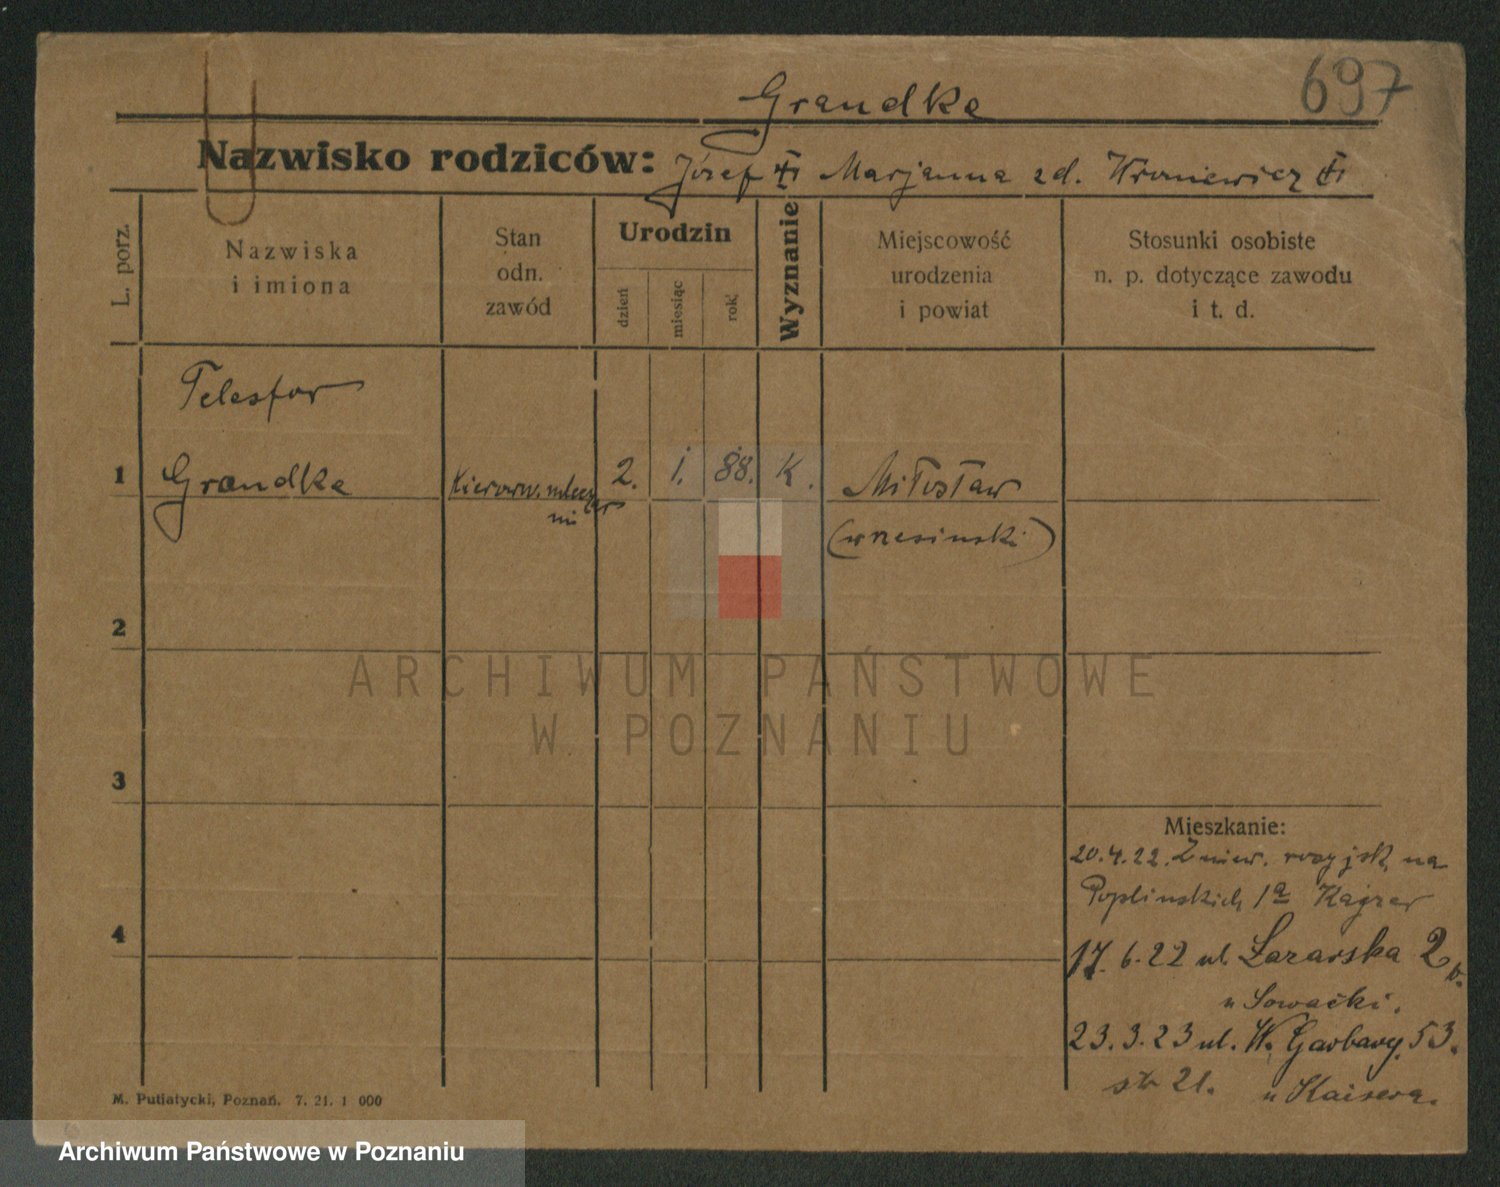 697
Grandke
Nazwisko rodziców: Józef Marjanna zd. Kroniewicz
L. porz.
Nazwiska
i imiona
Stan
odn.
zawód
Urodzin
dzień
miesiąc
rok
Wyznanie
Miejscowość
urodzenia
i powiat
Stosunki osobiste
n. p. dotyczące zawodu
i t. d.
Telesfor
1 Grandke Kierown. mlecz 2. 1. 88. K. Miłosław
(wrzesiński)
2
ARCHIWUM PAŃSTWOWE
W POZNANIU
3
Mieszkanie:
20.4.22. na
Poplinskich 1a Kajzer
4
17. 6. 22 ul. Łazarska 2
u Sowački.
23. 3. 23 ul. W. Garbary. 53.
21.
u Kaisera.
M. Putiatycki, Poznań. 7. 21. 1 000
Archiwum Państwowe w Poznaniu